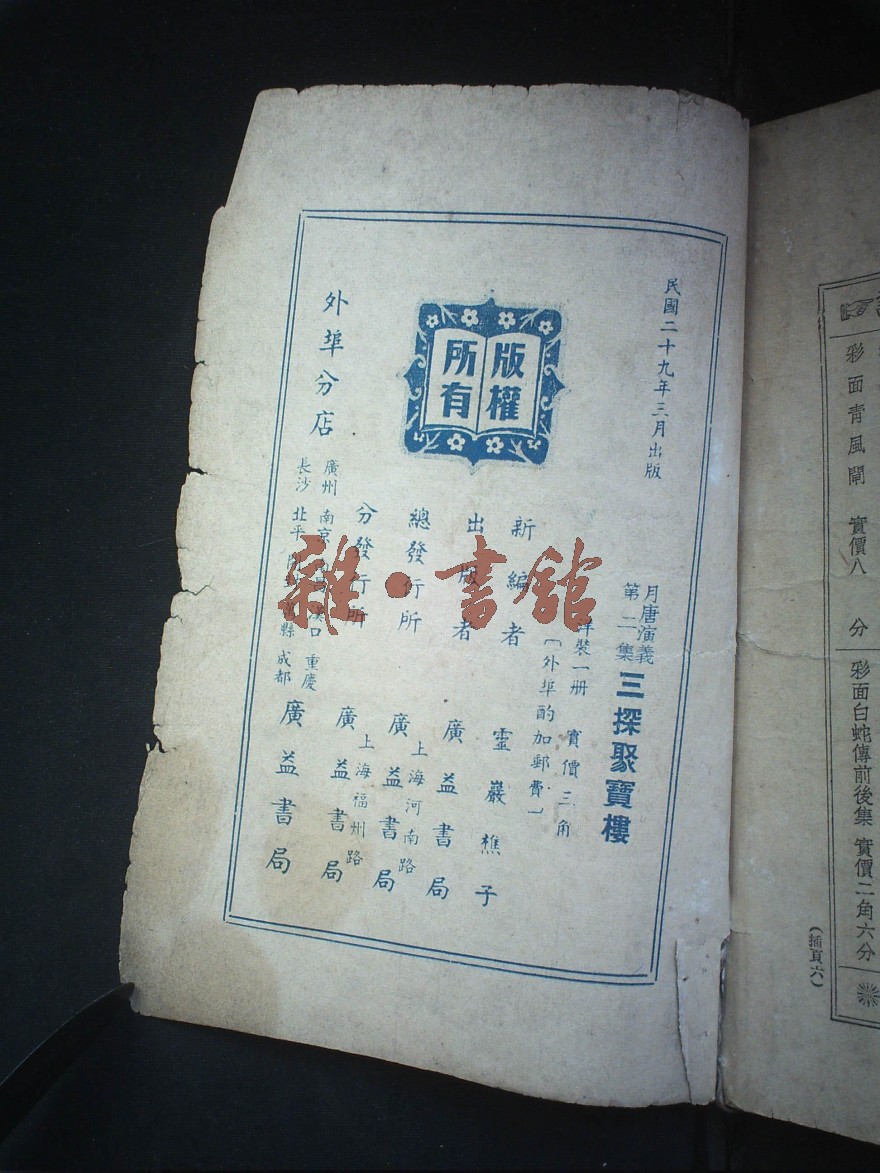 彩面青風閘 實價八 分
彩面白蛇傳前後集 實價二角六分
(插頁六)
民國二十九年三月出版
版權
所有
月唐演義
第二集
三探聚寶樓
裝一册 實價三角
(外埠酌加郵費)
新編者 靈巖樵子
出版者 廣益書局
總發行所 上海河南路
廣益書局
分發行所 上海福州路
廣益書局
外埠分店
廣州 南京 漢口 重慶
長沙 北平 縣 成都
廣益書局
雜·書館